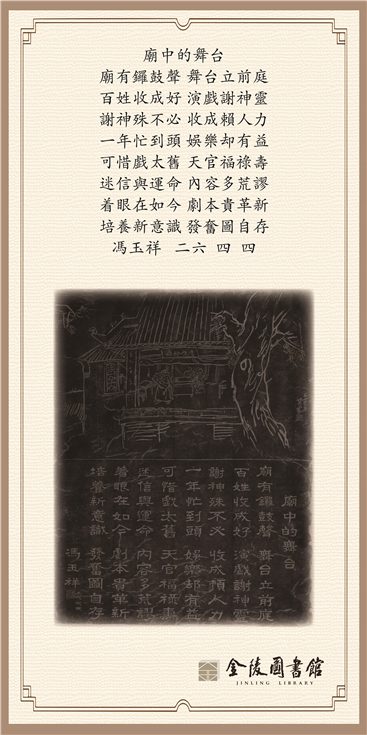 廟中的舞台
廟有鑼鼓聲 舞台立前庭
百姓收成好 演戲謝神靈
謝神殊不必 收成賴人力
一年忙到頭 娛樂却有益
可惜戲太舊 天官福祿壽
迷信與運命 內容多荒謬
着眼在如今 劇本貴革新
培養新意識 發奮圖自存
馮玉祥 二六 四 四
廟中的舞台
廟有鑼鼓聲 舞台立前庭
百姓收成好 演戲謝神靈
謝神殊不必 收成賴人力
一年忙到頭 娛樂却有益
可惜戲太舊 天官福祿壽
迷信與運命 內容多荒謬
着眼在如今 劇本貴革新
培養新意識 發奮圖自存
馮玉祥
金陵圖書館
JINLING LIBRARY